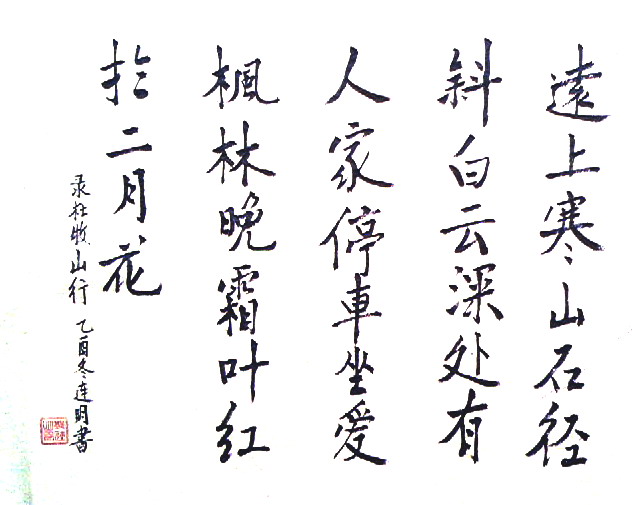 遠上寒山石径
斜白云深处有
人家停車坐爱
楓林晚霜叶红
於二月花
录杜牧山行 乙酉冬连明書